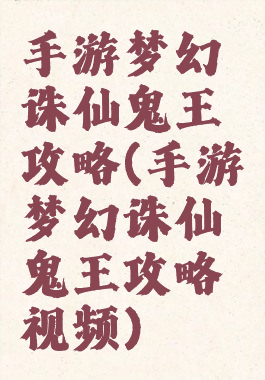 手游梦幻
诛仙鬼王
攻略(手游
梦幻诛仙
鬼王攻略
视频)